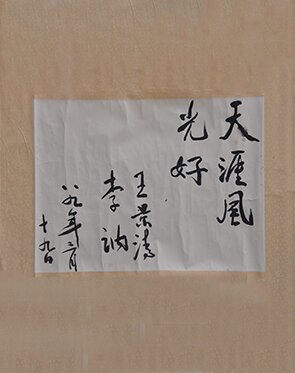 天涯风
光好
王景清
李讷
八九年二月
十九日